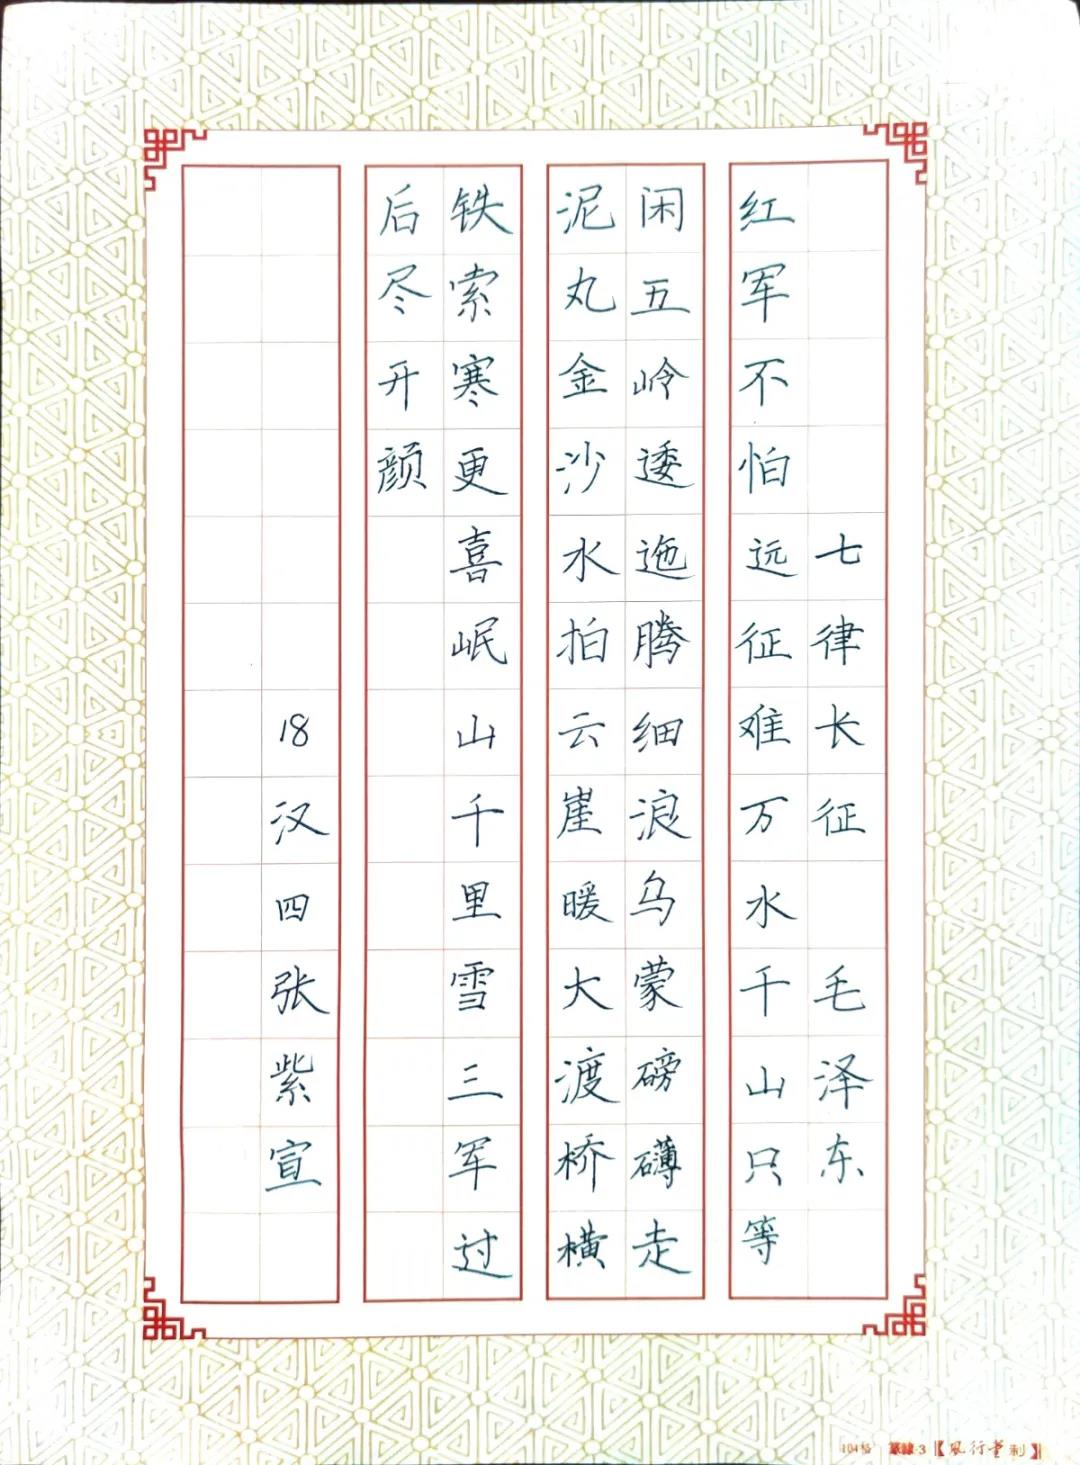 七律长征 毛泽东
红军不怕远征难万水千山只等
闲五岭逶迤腾细浪乌蒙磅礴走
泥丸金沙水拍云崖暖大渡桥横
铁索寒更喜岷山千里雪三军过
后尽开颜
18汉四张紫宣
104格 篆隶-3【风行堂制】